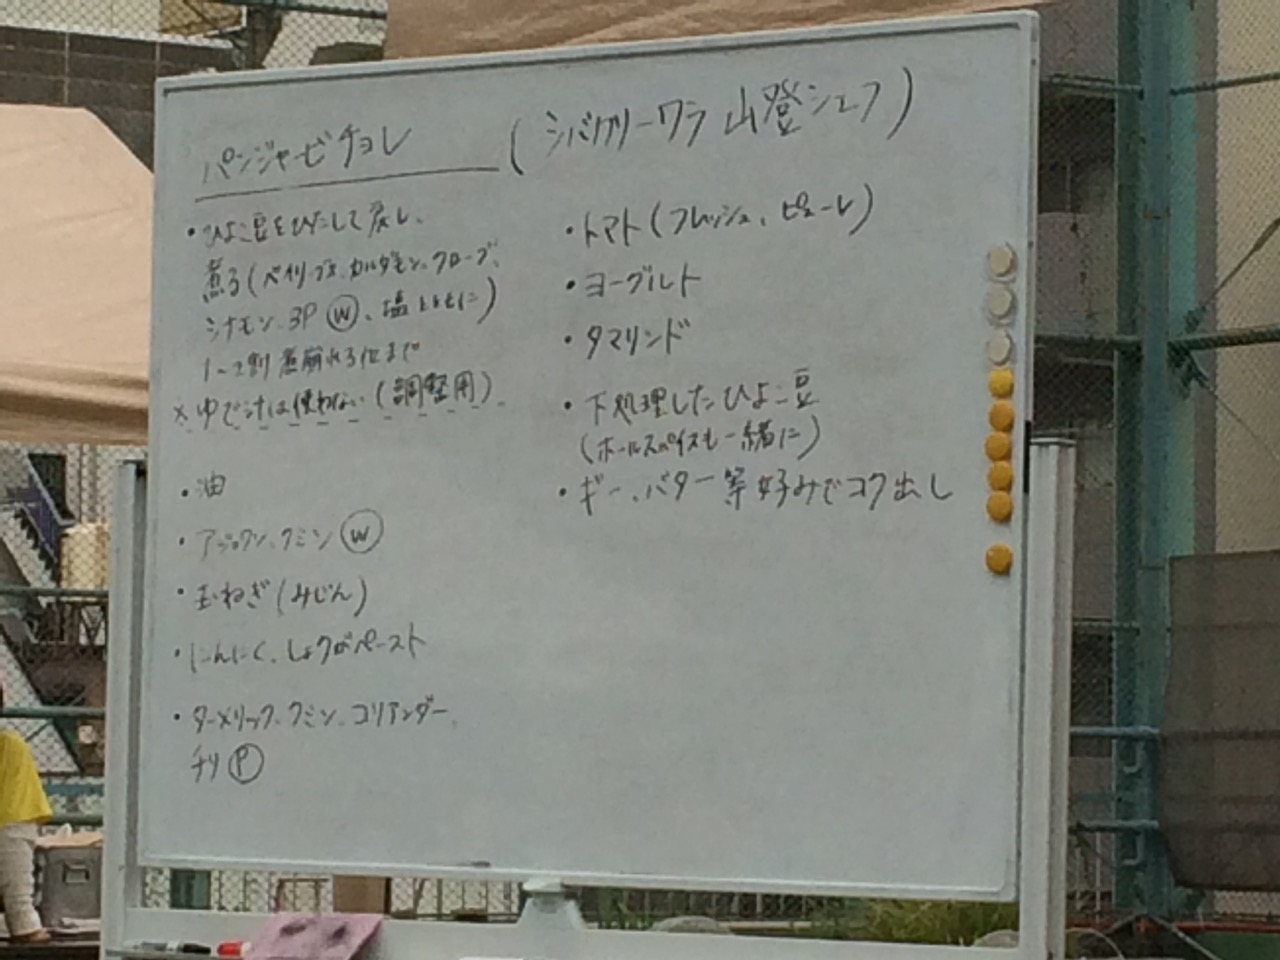 パンジャービチョレ (シバカリーワラ 山登シェフ)
・ひよこ豆をひたして戻し、
煮る(ベイリーブス、カルダモン、クローブ、
シナモン、BP Ⓦ、塩とともに)
1〜2割 煮崩れる位まで
※ゆで汁は使わない(調整用)
・油
・アジョワン、クミン Ⓦ
・玉ねぎ(みじん)
・にんにく、しょうがペースト
・ターメリック、クミン、コリアンダー、
チリ Ⓟ
・トマト(フレッシュ、ピューレ)
・ヨーグルト
・タマリンド
・下処理したひよこ豆
(ホールスパイスも一緒に)
・ギー、バター等 好みでコク出し